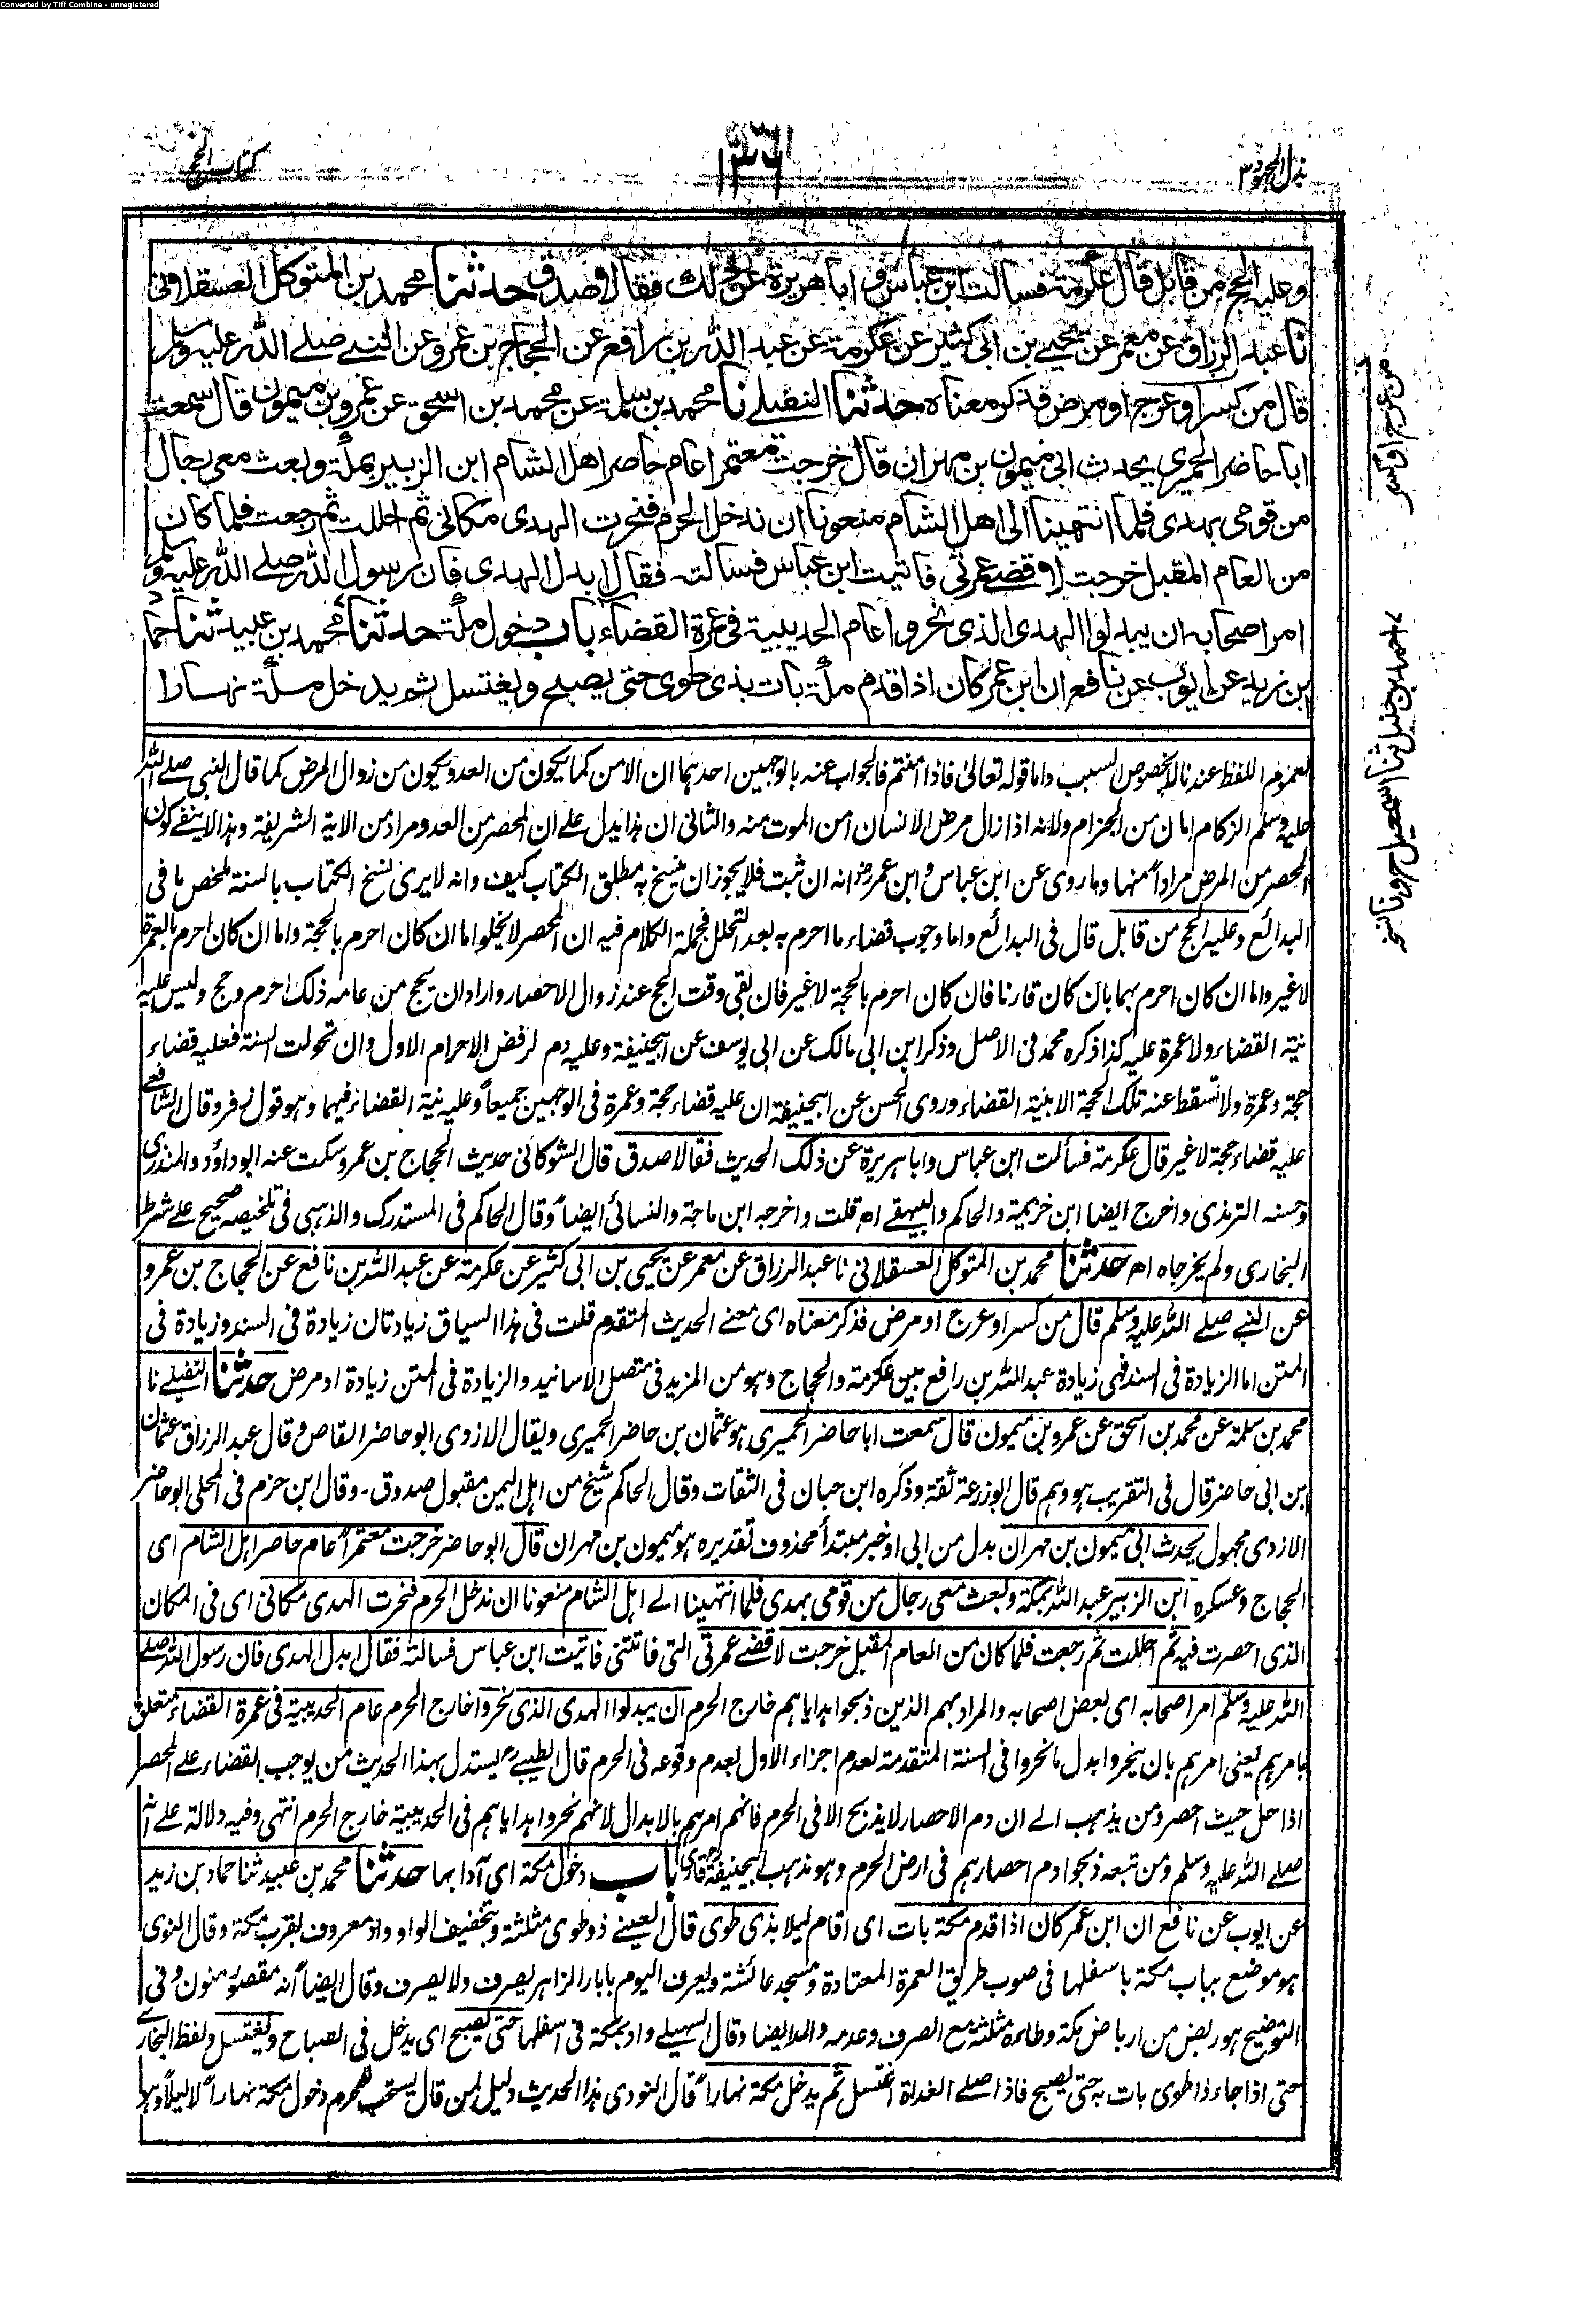 Converted by Tiff Combine - unregistered
بذل المجهود ٣
١٣٦
كتاب الحج
وعليه الحج من قابل قال عكرمة فسالت ابن عباس و ابا هريرة عن ذلك فقالا صدق حدثنا محمد بن المتوكل العسقلاني
نا عبد الرزاق عن معمر عن يحيى بن ابي كثير عن عكرمة عن عبد الله بن رافع عن الحجاج بن عمرو عن النبي صلے الله عليه وسلم
قال من كسر او عرج او مرض فذكر معناه حدثنا النفيلے نا محمد بن سلمة عن محمد بن اسحق عن عمرو بن ميمون قال سمعت
ابا حاضر الحميري يحدث ابي ميمون بن مهران قال خرجت معتمرا عام حاصر اهل الشام ابن الزبير بمكة وبعث معي رجال
من قومي بهدى فلما انتهينا الى اهل الشام منعونا ان ندخل الحرم فنحرت الهدى مكاني ثم احللت ثم رجعت فلما كان
من العام المقبل خرجت لاقضے عمرتي فاتيت ابن عباس فسالته فقال ابدل الهدى فان رسول الله صلے الله عليه وسلم
امر اصحابه ان يبدلوا الهدى الذي نحروا عام الحديبية في عمرة القضاء باب دخول مكة حدثنا محمد بن عبيد ثنا حماد
ابن زيد عن ايوب عن نافع ان ابن عمر كان اذا قدم مكة بات بذي طوى حتى يصبح ويغتسل ثم يدخل مكة نهارا
لعموم اللفظ عندنا لا لخصوص السبب واما قوله تعالى فاذا امنتم فالجواب عنه بالوجهين احدهما ان الامن كما يكون من العدو يكون من زوال المرض كما قال النبي صلے الله
عليه وسلم الزكام امان من الجذام ولانه اذا زال مرض الانسان امن الموت منه والثاني ان هذا يدل على ان المحصر من العدو مراد من الاية الشريفة وهذا لا ينفے كون
المحصر من المرض مراداً منها وما روى عن ابن عباس وابن عمر رض انه ان ثبت فلا يجوز ان ينسخ به مطلق الكتاب كيف وانه لا يرى نسخ الكتاب بالسنة ملخص ما في
البدائع وعليه الحج من قابل قال في البدائع واما وجوب قضاء ما احرم به بعد التحلل فجملة الكلام فيه ان المحصر لا يخلو اما ان كان احرم بالحجة واما ان كان احرم بالعمرة
لا غير واما ان كان احرم بهما بان كان قارنا فان كان احرم بالحجة لا غير فان بقى وقت الحج عند زوال الاحصار واراد ان يحج من عامه ذلك احرم وحج وليس عليه
نية القضاء ولا عمرة عليه كذا ذكره محمد في الاصل وذكر ابن ابي مالك عن ابي يوسف عن ابيحنيفة وعليه دم لرفض الاحرام الاول وان تحولت السنة فعليه قضاء
حجة وعمرة ولا تسقط عنه تلك الحجة الا بنية القضاء وروى الحسن عن ابيحنيفة ان عليه قضاء حجة وعمرة في الوجهين جميعاً وعليه نية القضاء فيهما وهو قول زفر وقال الشافعے
عليه قضاء حجة لا غير قال عكرمة فسألت ابن عباس وابا هريرة عن ذلك الحديث فقالا صدق قال الشوكاني حديث الحجاج بن عمرو سكت عنه ابو داؤد والمنذري
وحسنه الترمذي واخرج ايضا ابن خزيمة والحاكم والبيهقے اھ قلت واخرجه ابن ماجة والنسائي ايضاً وقال الحاكم في المستدرك والذهبي في تلخيصه صحيح على شرط
البخاري ولم يخرجاه اھ حدثنا محمد بن المتوكل العسقلاني نا عبد الرزاق عن معمر عن يحيى بن ابي كثير عن عكرمة عن عبد الله بن نافع عن الحجاج بن عمرو
عن النبے صلے الله عليه وسلم قال من كسر او عرج او مرض فذكر معناه اى معنے الحديث المتقدم قلت في هذا السياق زيادتان زيادة في السند وزيادة في
المتن اما الزيادة في السند فهي زيادة عبد الله بن رافع بين عكرمة والحجاج وهو من المزيد في متصل الاسانيد والزيادة في المتن زيادة او مرض حدثنا النفيلے نا
محمد بن سلمة عن محمد بن اسحق عن عمرو بن ميمون قال سمعت ابا حاضر الحميري هو عثمان بن حاضر الحميري ويقال الازدي ابو حاضر القاص وقال عبد الرزاق عثمان
ابن ابي حاضر قال في التقريب هو وهم قال ابو زرعة ثقة وذكره ابن حبان في الثقات وقال الحاكم شيخ من اهل اليمن مقبول صدوق - وقال ابن حزم في المحلى ابو حاضر
الازدي مجهول يحدث ابي ميمون بن مهران بدل من ابي او خبر مبتدأ محذوف تقديره هو ميمون بن مهران قال ابو حاضر خرجت معتمراً عام حاصر اهل الشام اى
الحجاج وعسكره ابن الزبير عبد الله بمكة وبعث معي رجال من قومي بهدى فلما انتهينا الے اهل الشام منعونا ان ندخل الحرم فنحرت الهدى مكاني اى في المكان
الذي احصرت فيه ثم احللت ثم رجعت فلما كان من العام المقبل خرجت لاقضے عمرتي التي فاتتني فاتيت ابن عباس فسالته فقال ابدل الهدى فان رسول الله صلے
الله عليه وسلم امر اصحابه اى بعض اصحابه والمراد بهم الذين ذبحوا هداياهم خارج الحرم ان يبدلوا الهدى الذي نحروا خارج الحرم عام الحديبية في عمرة القضاء متعلق
بامرهم يعني امرهم بان ينحروا بدل ما نحروا في السنة المتقدمة لعدم اجزاء الاول لعدم وقوعه في الحرم قال الطيبےؒ يستدل بهذا الحديث من يوجب القضاء على المحصر
اذا حل حيث احصر ومن يذهب الے ان دم الاحصار لا يذبح الا في الحرم فانهم امرهم بالابدال لانهم نحروا هداياهم في الحديبية خارج الحرم انتهى وفيه دلالة على انه
صلے الله عليه وسلم ومن تبعه ذبحوا دم احصارهم في ارض الحرم وهو مذهب ابيحنيفةؒ قاري باب دخول مكة اى آدابها حدثنا محمد بن عبيد ثنا حماد بن زيد
عن ايوب عن نافع ان ابن عمر كان اذا قدم مكة بات اى اقام ليلا بذي طوى قال العينے ذو طوى مثلثة وبتخفيف الواو واد معروف بقرب مكة وقال النووي
هو موضع بباب مكة باسفلها في صوب طريق العمرة المعتادة ومسجد عائشة ويعرف اليوم بابار الزاهر يصرف ولا يصرف وقال ايضاً انه مقصور منون وفي
التوضيح هو ربض من ارباض مكة وطاءه مثلثة مع الصرف وعدمه والمد ايضا وقال السهيلے واد بمكة في اسفلها حتى يصبح اى يدخل في الصباح ويغتسل ولفظ البخاري
حتى اذا جاء ذا طوى بات به حتى يصبح فاذا صلے الغداة اغتسل ثم يدخل مكة نهاراً قال النووي هذا الحديث دليل لمن قال يستحب للمحرم دخول مكة نهاراً لا ليلاً وهو
من عرج او كسر
احمد بن حنبل ثنا اسمعيل ح ونا نسخه